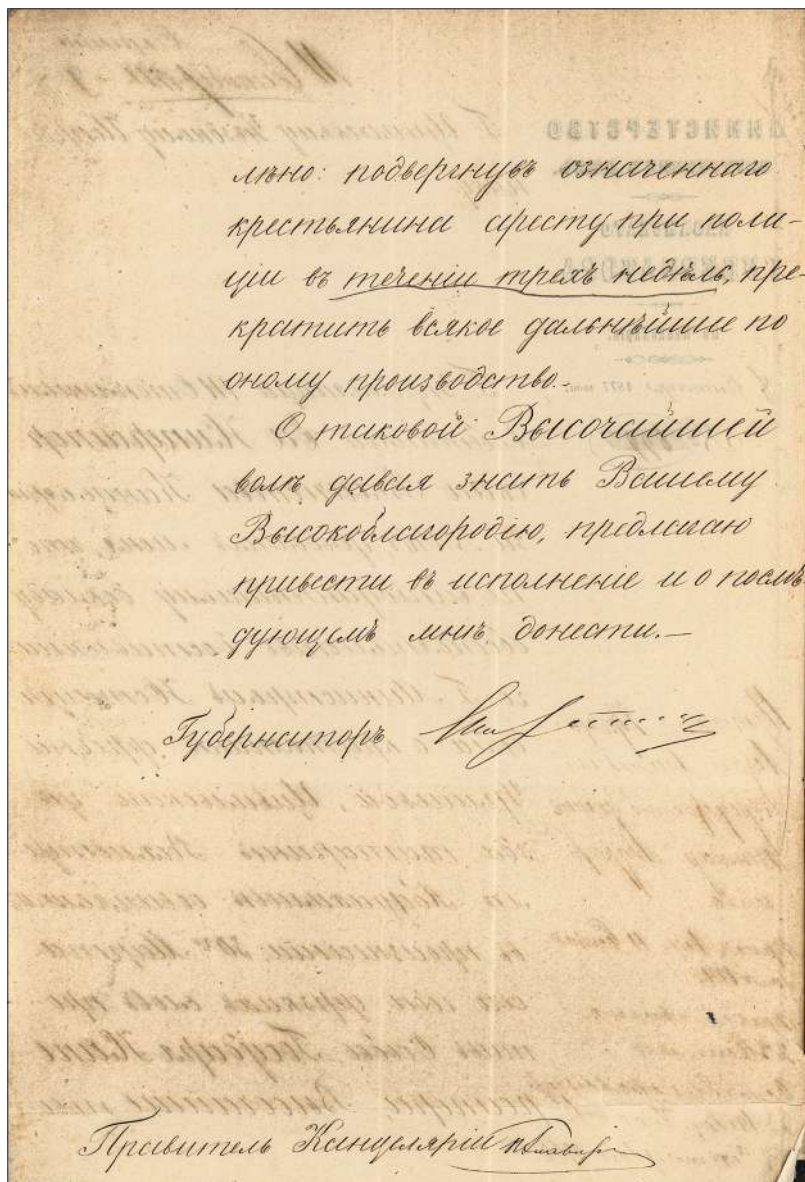 лѣно: подвергнувъ означеннаго
крестьянина аресту при поли-
ціи въ теченіи трехъ недѣль, пре-
кратить всякое дальнѣйшее по
оному производство.-
О таковой Высочайшей
волѣ давая знать Вашему
Высокоблагородію, предлагаю
привести въ исполненіе и о послѣ-
дующемъ мнѣ донести.—
Губернаторъ
Правитель Канцеляріи